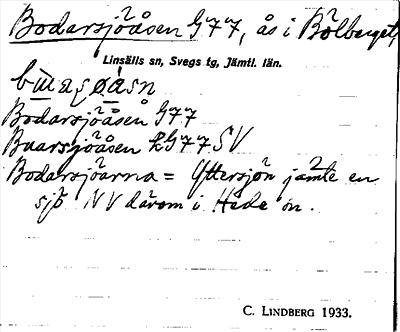 Bodarsjöåsen G77, ås i Bölberget,
Linsälls sn, Svegs tg, Jämtl. län.
Bodarsjöåsen G77
Buarsjöåsen LG77SV
Bodarsjöarna = Yttersjön jämte en
sjö NV därom i Hede sn.
C. LINDBERG 1933.